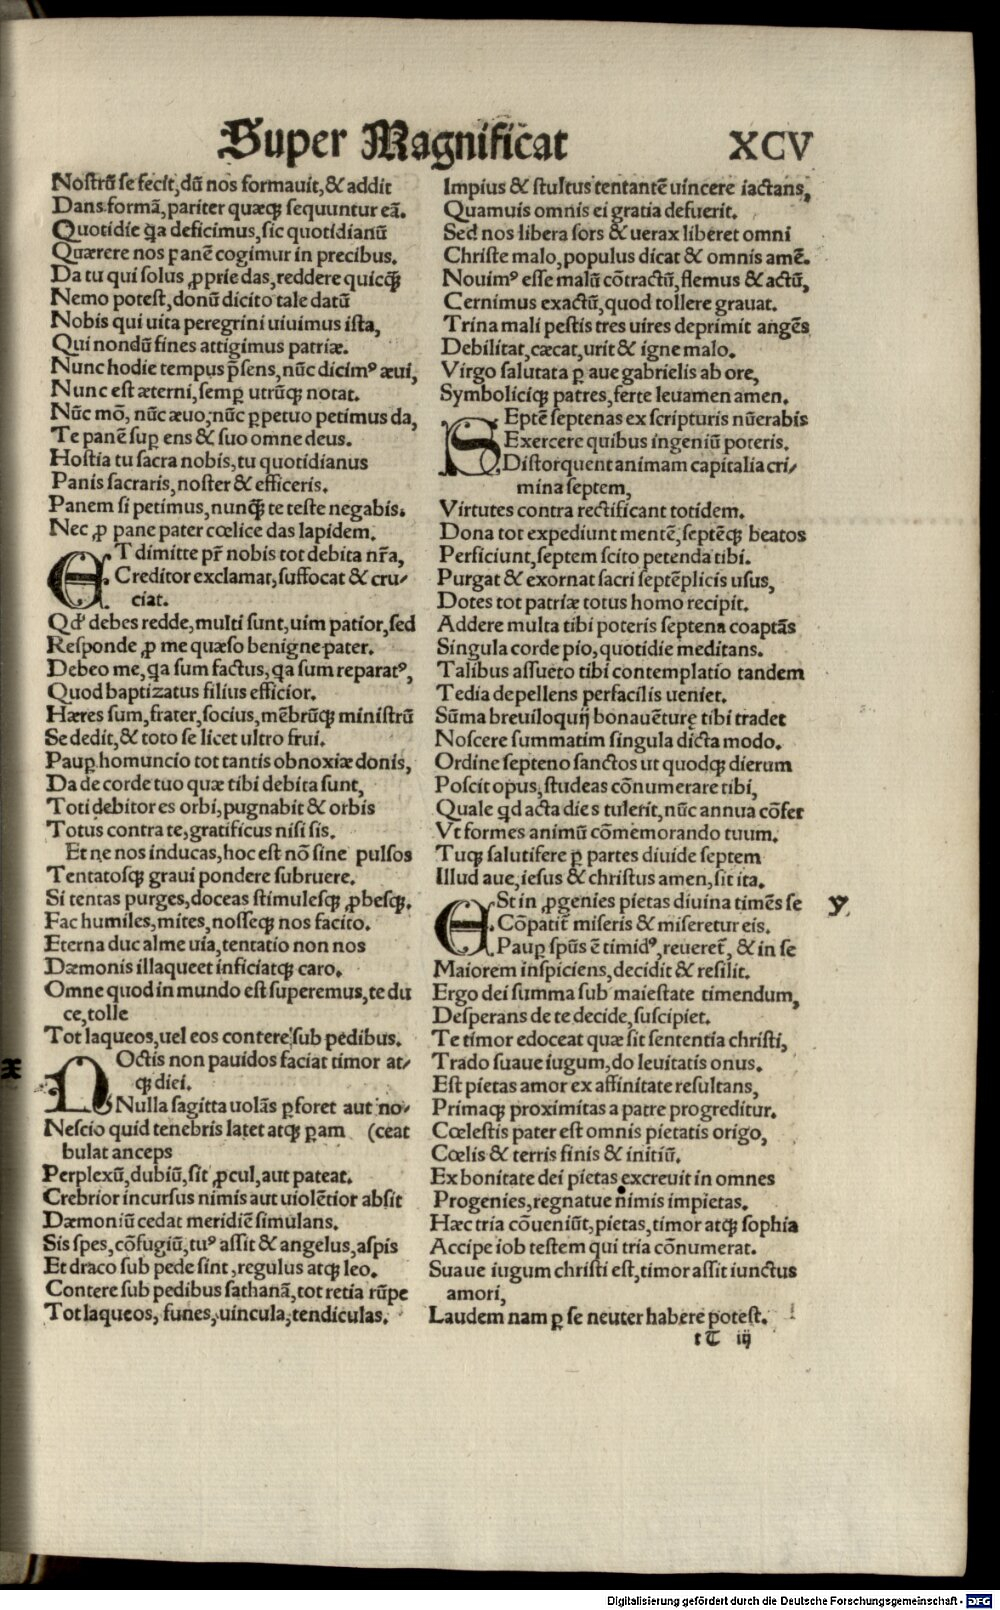 Super Magnificat XCV
Nostrũ se fecit, dũ nos formauit, & addit
Dans formã, pariter quæqꝫ sequuntur eã.
Quotidie q̃a deficimus, sic quotidianũ
Quærere nos panẽ cogimur in precibus.
Da tu qui solus ꝓprie das, reddere quicq̃ꝫ
Nemo potest, donũ dicito tale datũ
Nobis qui uita peregrini uiuimus ista,
Qui nondũ fines attigimus patriæ.
Nunc hodie tempus p̃sens, nũc dicimꝰ æui,
Nunc est æterni, semꝑ utrũqꝫ notat.
Nũc mõ, nũc æuo, nũc ꝑpetuo petimus da,
Te panẽ suꝑ ens & suo omne deus.
Hostia tu sacra nobis, tu quotidianus
Panis sacraris, noster & efficeris.
Panem si petimus, nunq̃ꝫ te teste negabis.
Nec ꝓ pane pater cœlice das lapidem.
ET dimitte pr̃ nobis tot debita nr̃a,
Creditor exclamat, suffocat & cru-
ciat.
Qđ debes redde, multi sunt, uim patior, sed
Responde ꝓ me quæso benigne pater.
Debeo me, q̃a sum factus, q̃a sum reparatꝰ,
Quod baptizatus filius efficior.
Hæres sum, frater, socius, mẽbrũqꝫ ministrũ
Se dedit, & toto se licet ultro frui.
Pauꝑ homuncio tot tantis obnoxiæ donis,
Da de corde tuo quæ tibi debita sunt,
Toti debitor es orbi, pugnabit & orbis
Totus contra te, gratificus nisi sis.
Et ne nos inducas, hoc est nõ sine pulsos
Tentatosqꝫ graui pondere subruere.
Si tentas purges, doceas stimulesqꝫ ꝓbesqꝫ.
Fac humiles, mites, nosseqꝫ nos facito.
Eterna duc alme uia, tentatio non nos
Dæmonis illaqueet inficiatqꝫ caro.
Omne quod in mundo est superemus, te du
ce, tolle
Tot laqueos, uel eos contere sub pedibus.
x
NOctis non pauidos faciat timor at-
qꝫ diei.
Nulla sagitta uolãs ꝑforet aut no-
Nescio quid tenebris latet atqꝫ ꝑam (ceat
bulat anceps
Perplexũ, dubiũ, sit ꝓcul, aut pateat.
Crebrior incursus nimis aut uiolẽtior absit
Dæmoniũ cedat meridiẽ simulans.
Sis spes, cõfugiũ, tuꝰ assit & angelus, aspis
Et draco sub pede sint, regulus atqꝫ leo.
Contere sub pedibus sathanã, tot retia rũpe
Tot laqueos, funes, uincula, tendiculas.
Impius & stultus tentantẽ uincere iactans,
Quamuis omnis ei gratia defuerit.
Sed nos libera sors & uerax liberet omni
Christe malo, populus dicat & omnis amẽ.
Nouimꝰ esse malũ cõtractũ, flemus & actũ,
Cernimus exactũ, quod tollere grauat.
Trina mali pestis tres uires deprimit angẽs
Debilitat, cæcat, urit & igne malo.
Virgo salutata ꝑ aue gabrielis ab ore,
Symboliciqꝫ patres, ferte leuamen amen.
SEptẽ septenas ex scripturis nũerabis
Exercere quibus ingeniũ poteris.
Distorquent animam capitalia cri-
mina septem,
Virtutes contra rectificant totidem.
Dona tot expediunt mentẽ, septẽqꝫ beatos
Perficiunt, septem scito petenda tibi.
Purgat & exornat sacri septẽplicis usus,
Dotes tot patriæ totus homo recipit.
Addere multa tibi poteris septena coaptãs
Singula corde pio, quotidie meditans.
Talibus assueto tibi contemplatio tandem
Tedia depellens perfacilis ueniet.
Sũma breuiloquij bonauẽturę tibi tradet
Noscere summatim singula dicta modo.
Ordine septeno sanctos ut quodqꝫ dierum
Poscit opus, studeas cõnumerare tibi,
Quale qd̃ acta dies tulerit, nũc annua cõfer
Vt formes animũ cõmemorando tuum.
Tuqꝫ salutifere ꝑ partes diuide septem
Illud aue, iesus & christus amen, sit ita.
ESt in ꝓgenies pietas diuina timẽs se y
Cõpatit̃ miseris & miseretur eis.
Pauꝑ spũs ẽ timidꝰ, reueret̃, & in se
Maiorem inspiciens, decidit & resilit.
Ergo dei summa sub maiestate timendum,
Desperans de te decide, suscipiet.
Te timor edoceat quæ sit sententia christi,
Trado suaue iugum, do leuitatis onus.
Est pietas amor ex affinitate resultans,
Primaqꝫ proximitas a patre progreditur.
Cœlestis pater est omnis pietatis origo,
Cœlis & terris finis & initiũ.
Ex bonitate dei pietas excreuit in omnes
Progenies, regnatue nimis impietas.
Hæc tria cõueniũt, pietas, timor atqꝫ sophia
Accipe iob testem qui tria cõnumerat.
Suaue iugum christi est, timor assit iunctus
amori,
Laudem nam ꝑ se neuter habere potest.
t T iij
Digitalisierung gefördert durch die Deutsche Forschungsgemeinschaft - DFG